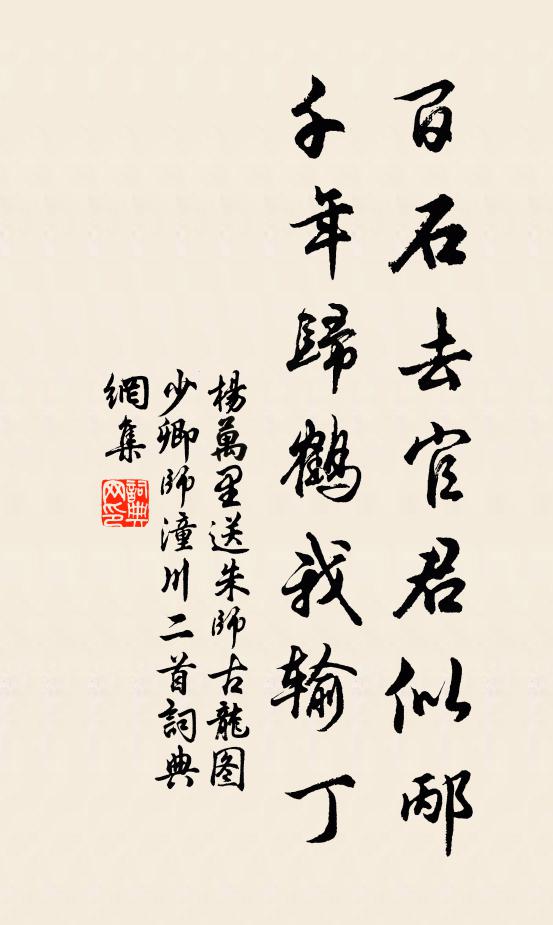 百石去官君似邴
千年歸鶴我輸丁
楊萬里送朱師古龍图
少卿師潼川二首詞典
網集
詞典網印